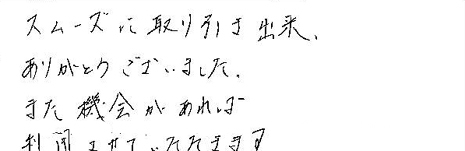 スムーズに取り引き出来、
ありがとうございました。
また機会があれば
利用させていただきます